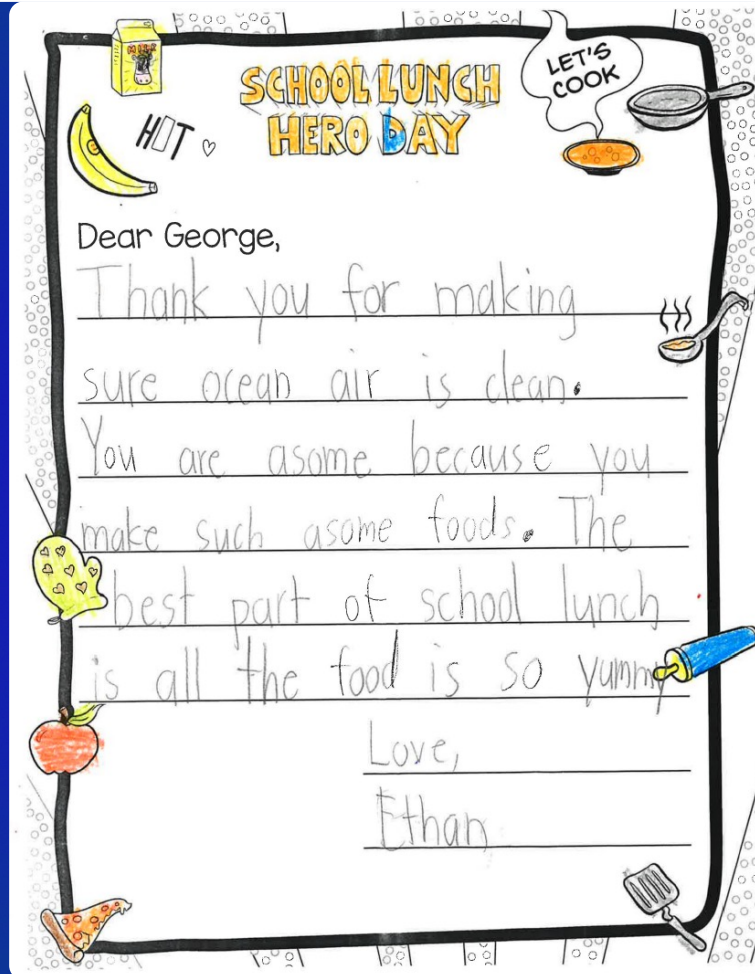 MILK
SCHOOL LUNCH
HERO DAY
LET'S
COOK
HOT
Dear George,
Thank you for making
sure ocean air is clean.
You are asome because you
make such asome foods. The
best part of school lunch
is all the food is so yummy
Love,
Ethan